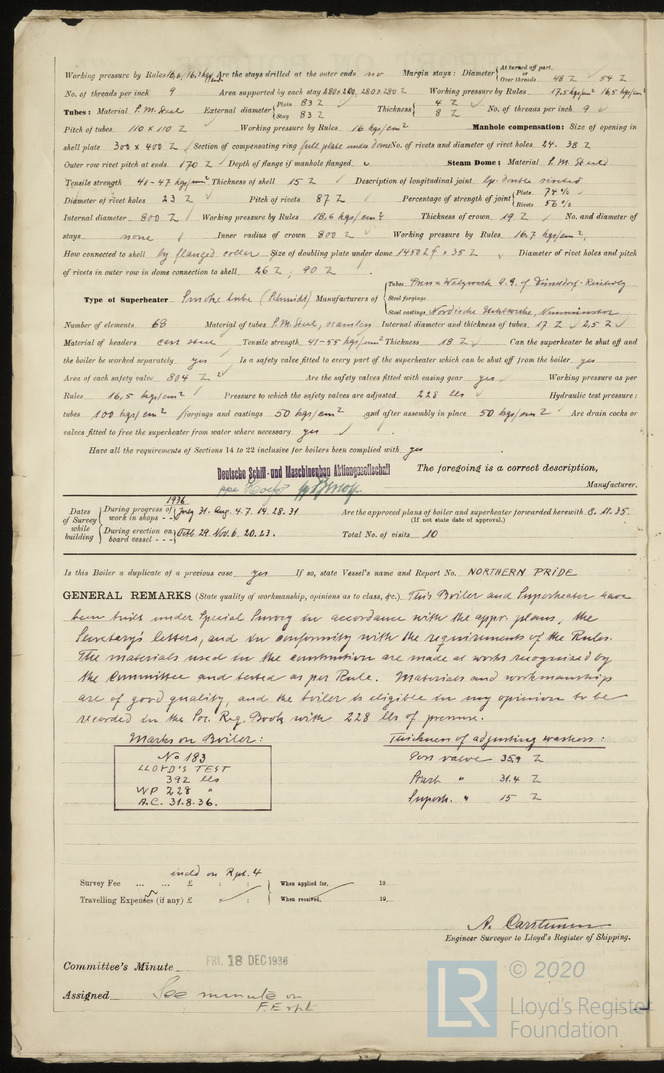 Working pressure by Rules 18,6; 16,7 kgs/cm² Are the stays drilled at the outer ends no Margin stays: Diameter { At turned off part, or Over threads 48 Z 54 Z
No. of threads per inch 9 Area supported by each stay 280x260, 280x280 Z Working pressure by Rules 17.5 kgs/cm² 16,5 kgs/cm²
Tubes: Material S.M. Steel External diameter { Plain 83 Z Stay 83 Z Thickness { 4 Z 8 Z No. of threads per inch 9
Pitch of tubes 110 x 110 Z Working pressure by Rules 16 kgs/cm² Manhole compensation: Size of opening in
shell plate 300 x 400 Z Section of compensating ring full plate under dome No. of rivets and diameter of rivet holes 24. 38 Z
Outer row rivet pitch at ends 170 Z Depth of flange if manhole flanged Steam Dome: Material S.M. Steel
Tensile strength 41-47 kgs/cm² Thickness of shell 15 Z Description of longitudinal joint lap double riveted
Diameter of rivet holes 23 Z Pitch of rivets 87 Z Percentage of strength of joint { Plate 74 % Rivets 56 %
Internal diameter 800 Z Working pressure by Rules 18,6 kgs/cm² Thickness of crown 19 Z No. and diameter of
stays none Inner radius of crown 800 Z Working pressure by Rules 16.7 kgs/cm²,
How connected to shell by flanged collar Size of doubling plate under dome 1450 x 35 Z Diameter of rivet holes and pitch
of rivets in outer row in dome connection to shell 26 Z; 90 Z.
Type of Superheater Smoke tube (Schmidt) Manufacturers of { Tubes Press u Walzwerk A.G. of Düsseldorf-Reisholz
Steel forgings
Steel castings Nordische Stahlwerke, Neumünster
Number of elements 68 Material of tubes S.M. Steel, seamless Internal diameter and thickness of tubes 17 Z 2,5 Z
Material of headers cast steel Tensile strength 41-55 kgs/cm² Thickness 18 Z Can the superheater be shut off and
the boiler be worked separately yes Is a safety valve fitted to every part of the superheater which can be shut off from the boiler yes
Area of each safety valve 804 Z² Are the safety valves fitted with easing gear yes Working pressure as per
Rules 16,5 kgs/cm² Pressure to which the safety valves are adjusted 228 lbs Hydraulic test pressure:
tubes 100 kgs/cm² forgings and castings 50 kgs/cm² and after assembly in place 50 kgs/cm² Are drain cocks or
valves fitted to free the superheater from water where necessary yes
Have all the requirements of Sections 14 to 22 inclusive for boilers been complied with yes
Deutsche Schiff- und Maschinenbau Aktiengesellschaft The foregoing is a correct description,
Manufacturer.
Dates of Survey while building { During progress of work in shops - - 1936 July 31. Aug. 4. 7. 14. 28. 31 Are the approved plans of boiler and superheater forwarded herewith 8. 11. 35.
(If not state date of approval.)
During erection on board vessel - - - Oct. 29. Nov. 6. 20. 23. Total No. of visits 10
Is this Boiler a duplicate of a previous case yes If so, state Vessel's name and Report No. NORTHERN PRIDE
GENERAL REMARKS (State quality of workmanship, opinions as to class, &c.) This Boiler and Superheater have
been built under Special Survey in accordance with the appr. plans, the
Secretary's letters, and in conformity with the requirements of the Rules.
The materials used in the construction are made at works recognized by
the Committee and tested as per Rule. Materials and workmanship
are of good quality, and the boiler is eligible in my opinion to be
recorded in the Soc. Reg. Book with 228 lbs of pressure.
Marks on Boiler: Thickness of adjusting washers:
No 183 Port valve 35,9 Z
LLOYD'S TEST
392 lbs Starb. " 31.4 Z
WP 228 "
A.C. 31.8.36. Superh. " 15 Z
incld on Rpt. 4
Survey Fee ... ... £ : : When applied for, 19
Travelling Expenses (if any) £ : : When received, 19
A. Carstensen
Engineer Surveyor to Lloyd's Register of Shipping.
Committee's Minute FRI. 18 DEC 1936
Assigned See minute on
F.E. rpt
LR © 2020
Lloyd's Register
Foundation